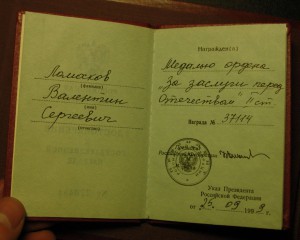 Ломасков
(фамилия)
Валентин
(имя)
Сергеевич
(отчество)
Награжден(а)
Медалью ордена
"За заслуги перед
Отечеством" II ст.
Награда № 37114
Указ Президента
Российской Федерации
от 25. 09